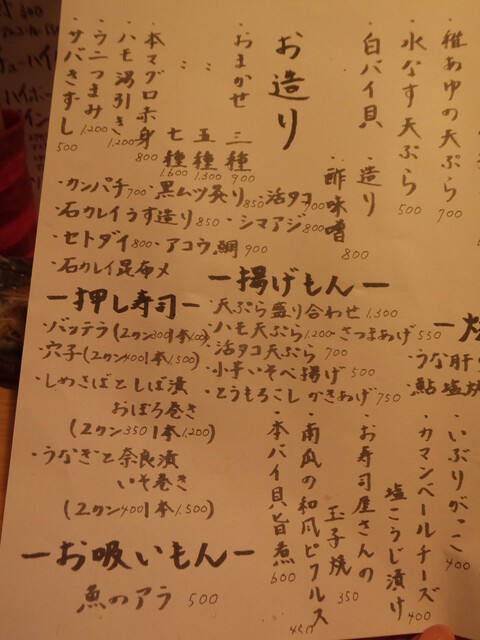 ・稚あゆの天ぷら 700
・水なす天ぷら 500
・白バイ貝 造り
・酢味噌 800
お造り
・おまかせ 三種 900
〃 五種 1.300
〃 七種 1.600
・本マグロ赤身 800
・ハモ湯引き 1.200
・ウニつまみ 1.200
・サバきずし 500
・カンパチ 700 ・黒ムツ炙り 850 ・活タコ 700
・石カレイうす造り 850 ・シマアジ 800
・セトダイ 800 ・アコウ鯛 900
・石カレイ昆布〆
ー揚げもんー
・天ぷら盛り合わせ 1.300
・ハモ天ぷら 1.200 ・さつまあげ 550
・活タコ天ぷら 700
・小芋いそべ揚げ 500
・とうもろこしかきあげ 750
ー押し寿司ー
・バッテラ(2カン300 1本900)
・穴子(2カン400 1本1,500)
・しめさばとしば漬
おぼろ巻き
(2カン350 1本1,200)
・うなぎと奈良漬
いそ巻き
(2カン400 1本1,500)
ーお吸いもんー
魚のアラ 500
・うな肝
・鮎 塩焼
・いぶりがっこ 400
・カマンベールチーズ
塩こうじ漬け 400
・お寿司屋さんの
玉子焼 350
・南瓜の和風ピクルス 450
・本バイ貝旨煮 600